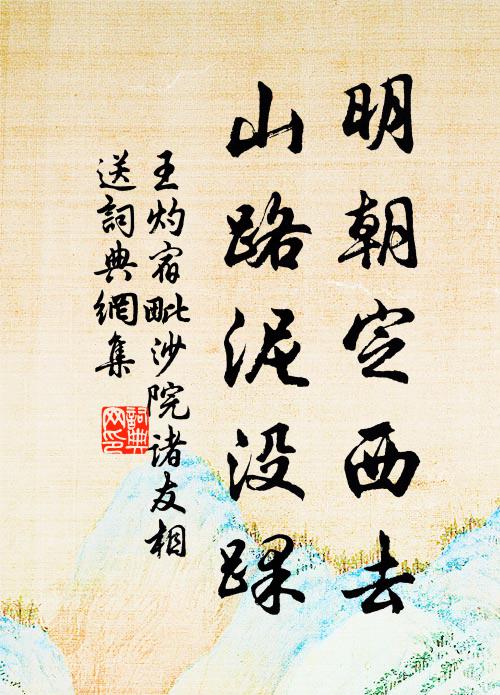 明朝定西去
山路泥没踝
王灼宿毗沙院诸友相
送詞典網集
詞典
网印